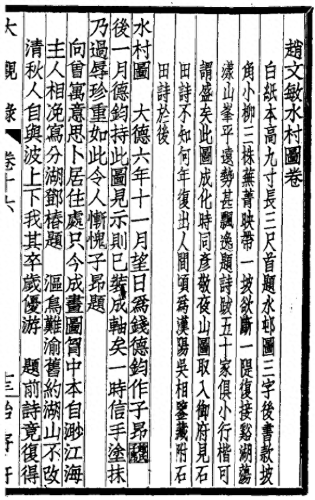 趙文敏水村圖卷
白紙本高九寸長三尺首題水邨圖三字後書款坡
角小柳三株蕪菁映帶一坡欲斷一隄復接谿湖蕩
漾山峯平遠勢甚飄逸題詩跋五十家俱小行楷可
謂盛矣此圖成化時同彥敬夜山圖取入御府見石
田詩不知何年復出人間頃為漢陽吳相鑒藏附石
田詩於後
水村圖 大德六年十一月望日為錢德鈞作子昂
後一月德鈞持此圖見示則已裝成軸矣一時信手塗抹
乃過辱珍重如此令人慚愧子昂題
向曾寓意思卜居住處只今成畫圖胷中本自渺江海
主人相浼寫分湖鄧椿題 漚鳥難渝舊約湖山不改
清秋人自與波上下我其卒歲優游 題前詩竟復得
大觀錄 卷十六